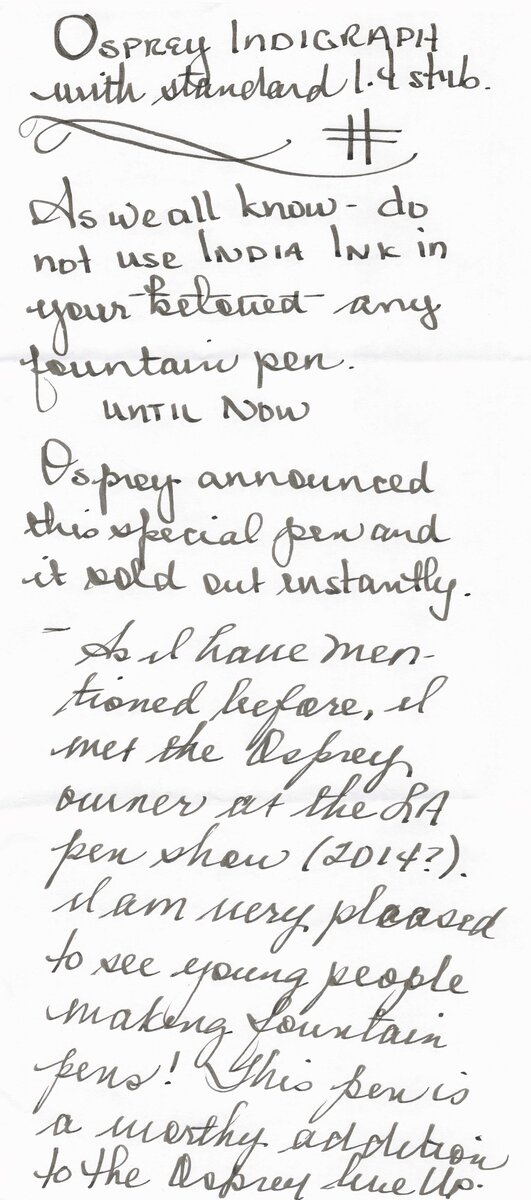 OSPREY INDIGRAPH
with standard 1.4 stub.
As we all know - do
not use INDIA INK in
your beloved any
fountain pen.
UNTIL NOW
Osprey announced
this special pen and
it sold out instantly.
- As I have men-
tioned before, I
met the Osprey
owner at the LA
pen show (2014?).
I am very pleased
to see young people
making fountain
pens! This pen is
a worthy addition
to the Osprey line up.